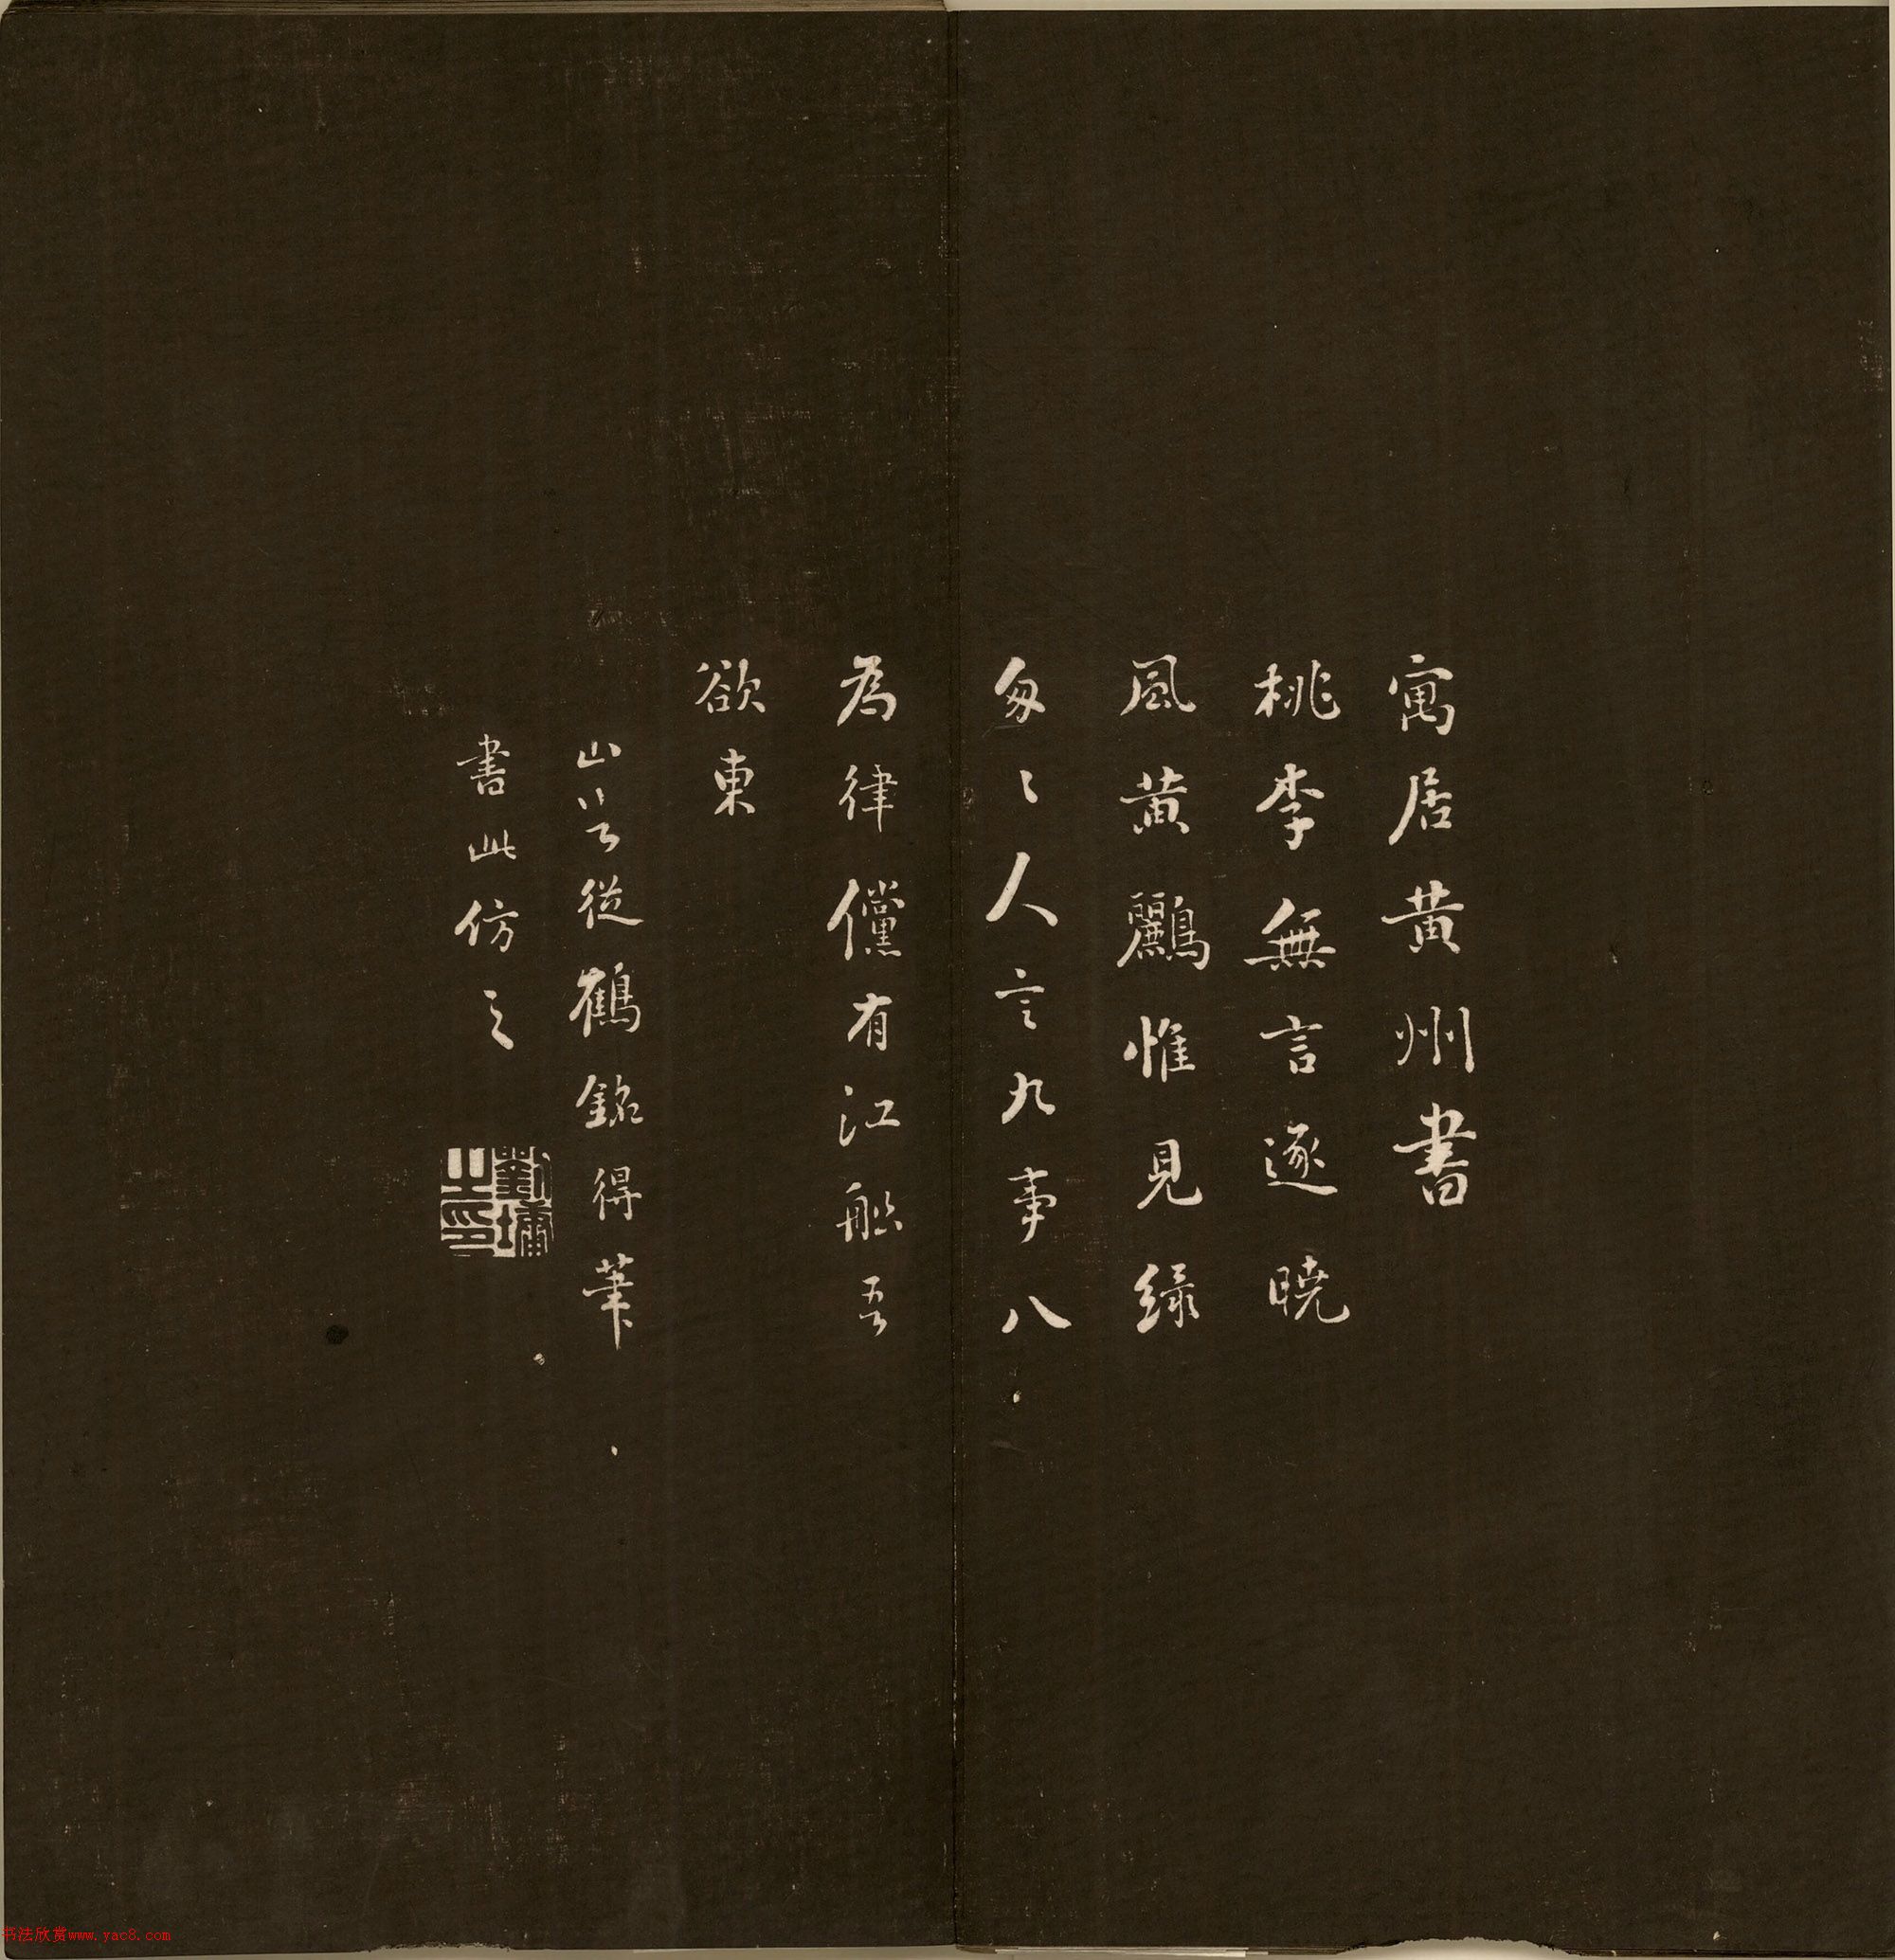 寓居黄州書
桃李無言逐曉
風黄鸝惟見緑
匆〻人言九事八
為律儻有江船吾
欲東
山谷從鶴銘得筆
書此仿之
劉墉之印
书法欣赏www.yac8.com